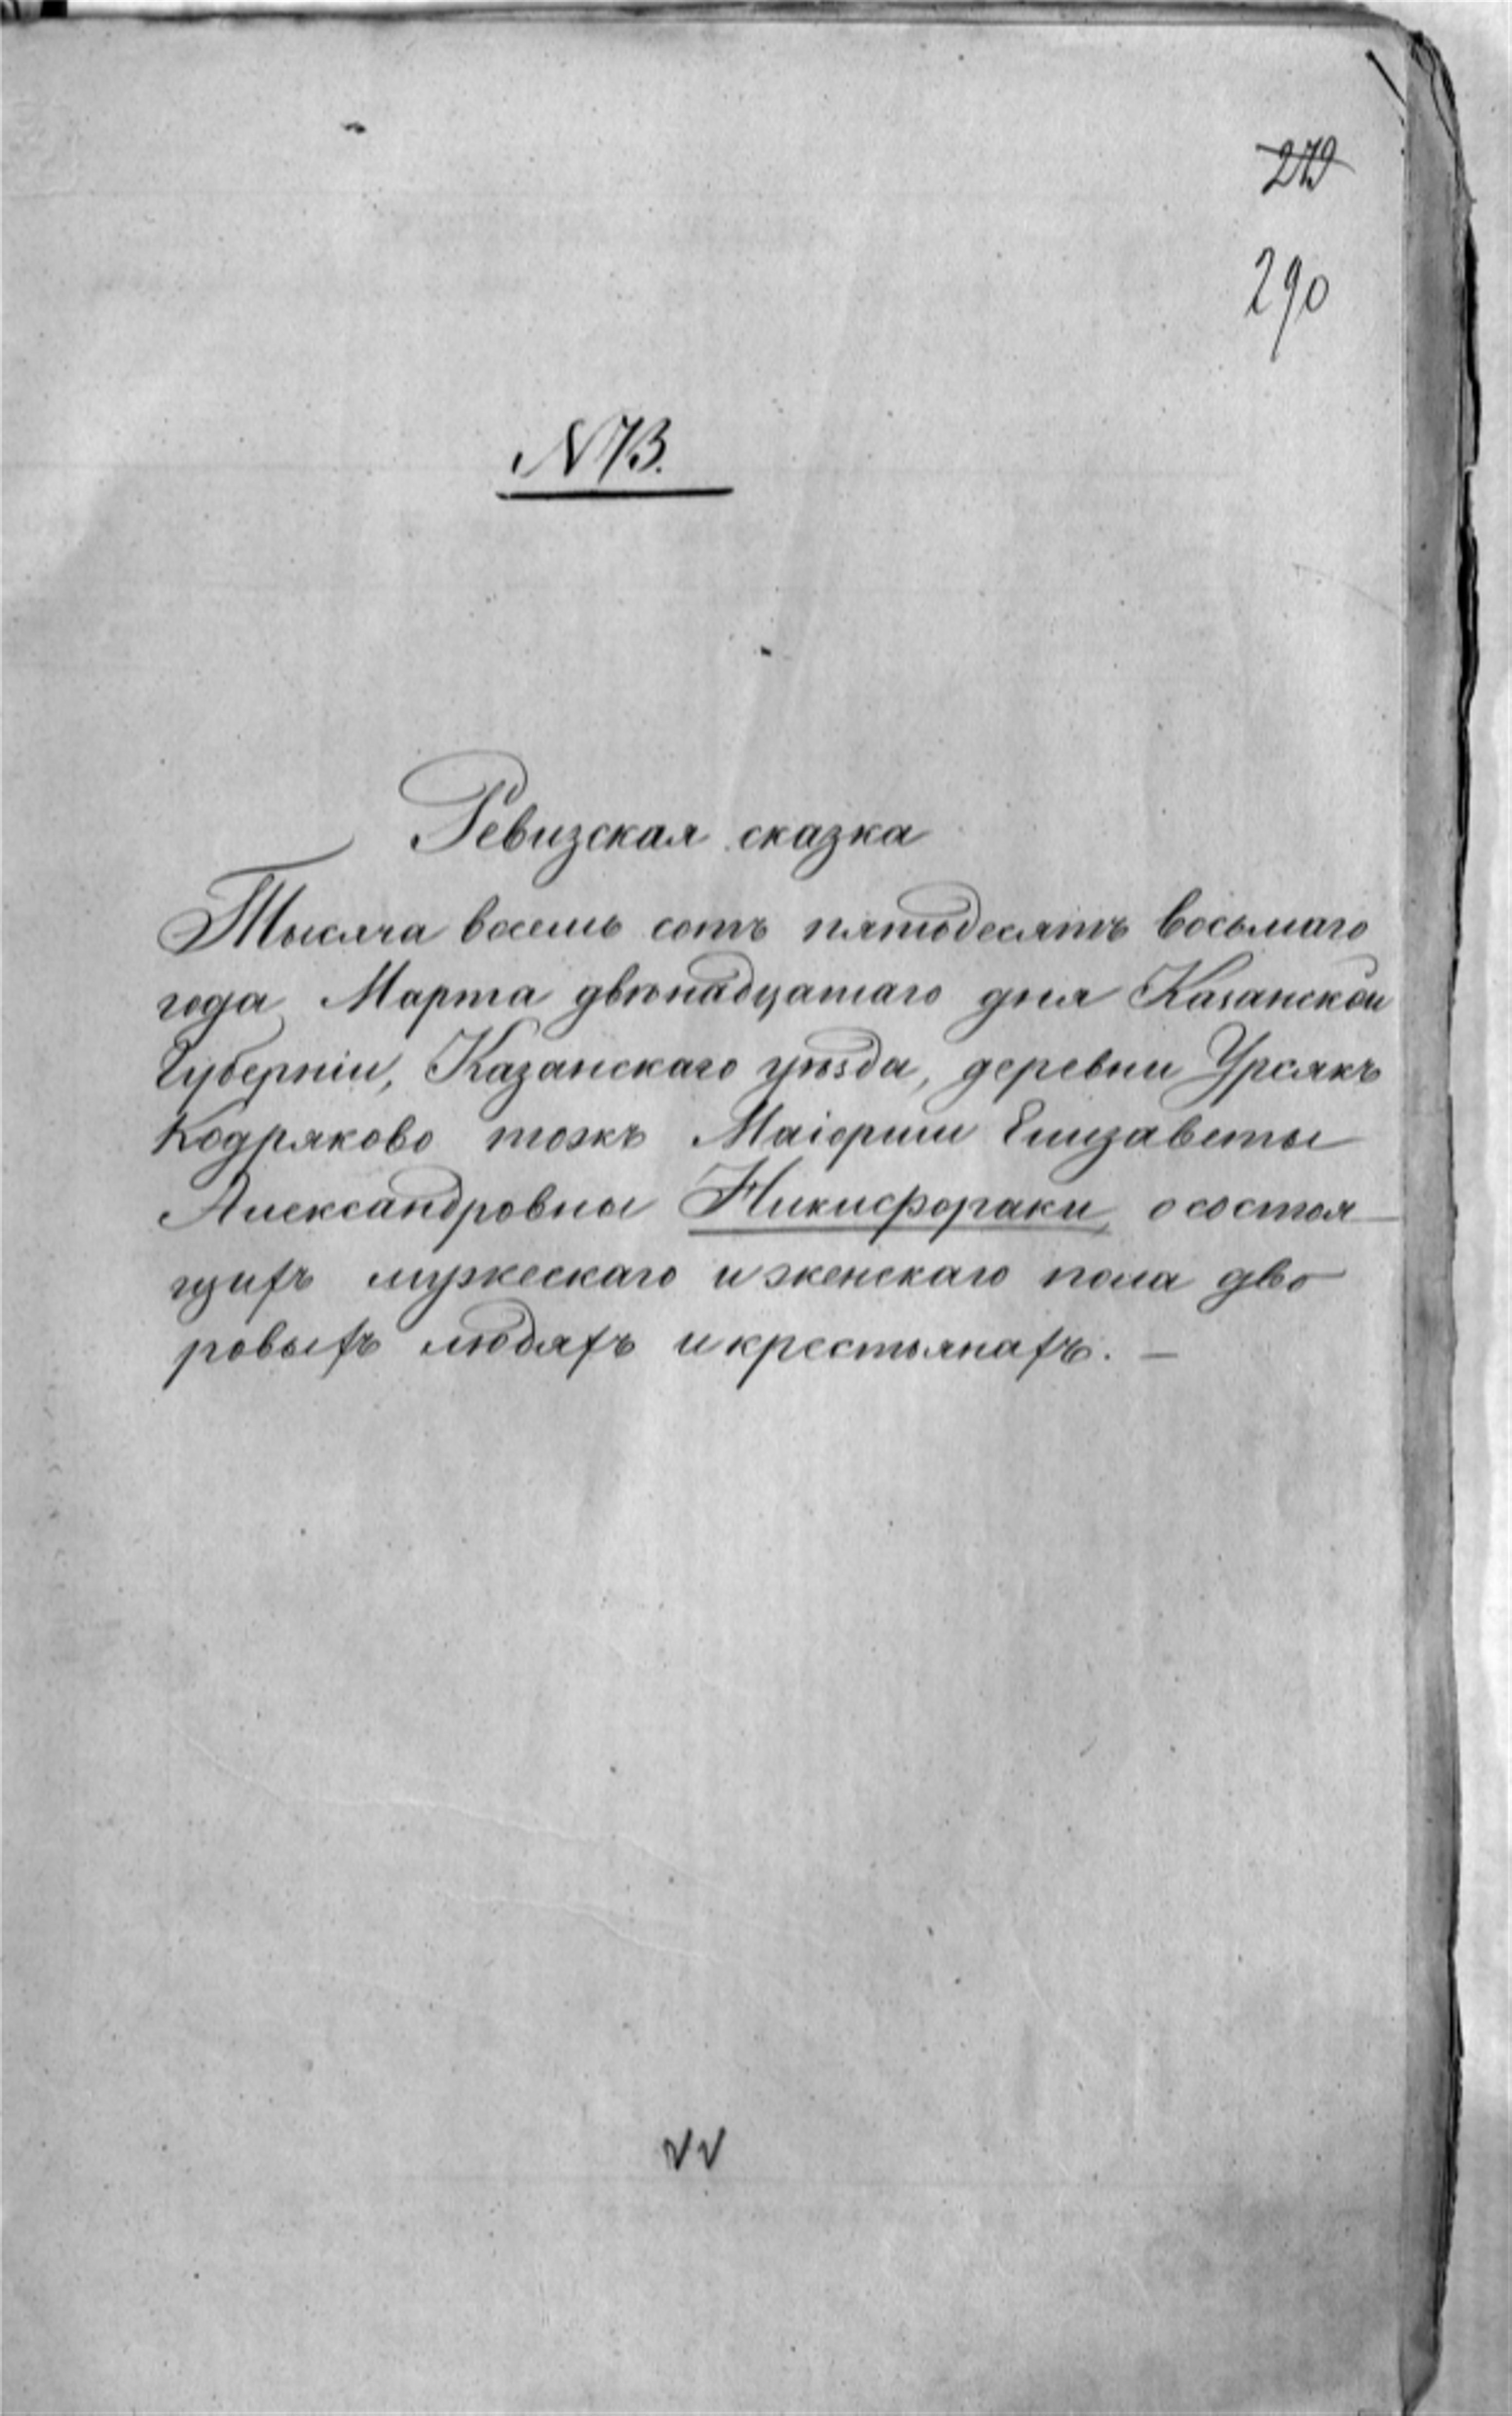 279
290
N 73.
Ревизская сказка
Тысяча восемь сотъ пятодесятъ восьмаго
года Марта двѣнадцатаго дня Казанской
Губерніи, Казанскаго уѣзда, деревни Урсякъ
Кодряково тожъ Маіорши Елизаветы
Александровны Никифораки, о состоя
щихъ мужескаго и женскаго пола дво
ровыхъ людяхъ и крестьянахъ. —